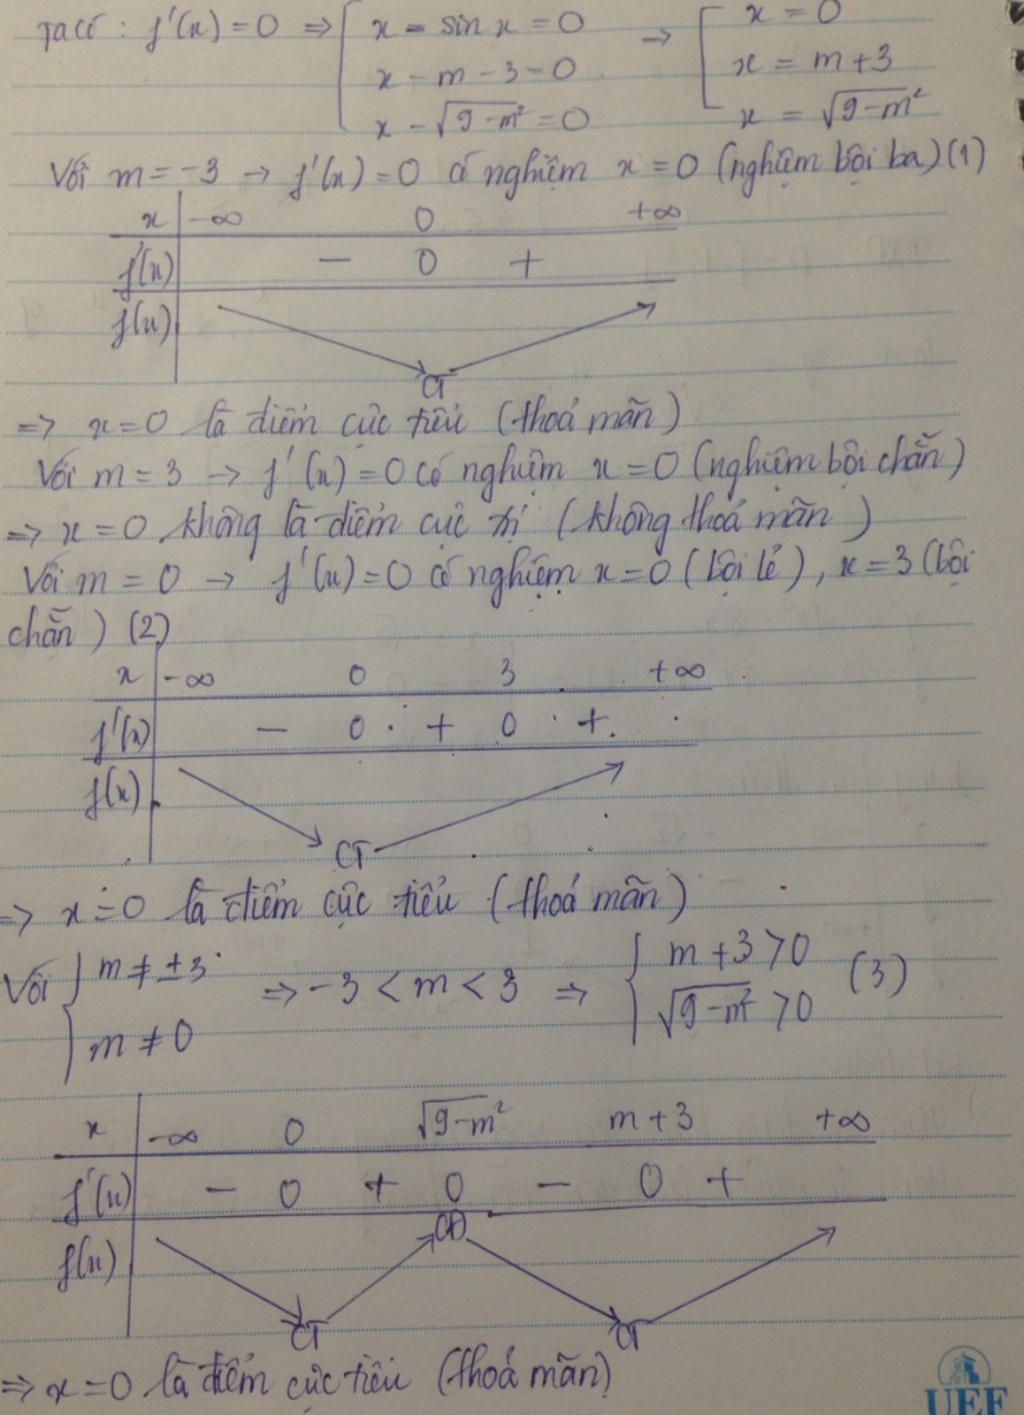 Ta có : f'(x) = 0 ⇒ [ x - sin x = 0 → [ x = 0
x - m - 3 = 0 x = m+3
x - √(9-m²) = 0 x = √(9-m²)
Với m = -3 → f'(x) = 0 có nghiệm x = 0 (nghiệm bội ba) (1)
x -∞ 0 +∞
f'(x) - 0 +
f(x)
CT
=> x = 0 là điểm cực tiểu (thoả mãn)
Với m = 3 → f'(x) = 0 có nghiệm x = 0 (nghiệm bội chẵn)
=> x = 0 không là điểm cực trị (không thoả mãn)
Với m = 0 → f'(x) = 0 có nghiệm x = 0 (bội lẻ), x = 3 (bội
chẵn) (2)
x -∞ 0 3 +∞
f'(x) - 0 + 0 +
f(x)
CT
=> x = 0 là điểm cực tiểu (thoả mãn)
Với { m ≠ ±3 => -3 < m < 3 => { m + 3 > 0 (3)
m ≠ 0 √(9-m²) > 0
x -∞ 0 √(9-m²) m+3 +∞
f'(x) - 0 + 0 - 0 +
CĐ
f(x)
CT CT
=> x = 0 là điểm cực tiểu (thoả mãn)
UEF